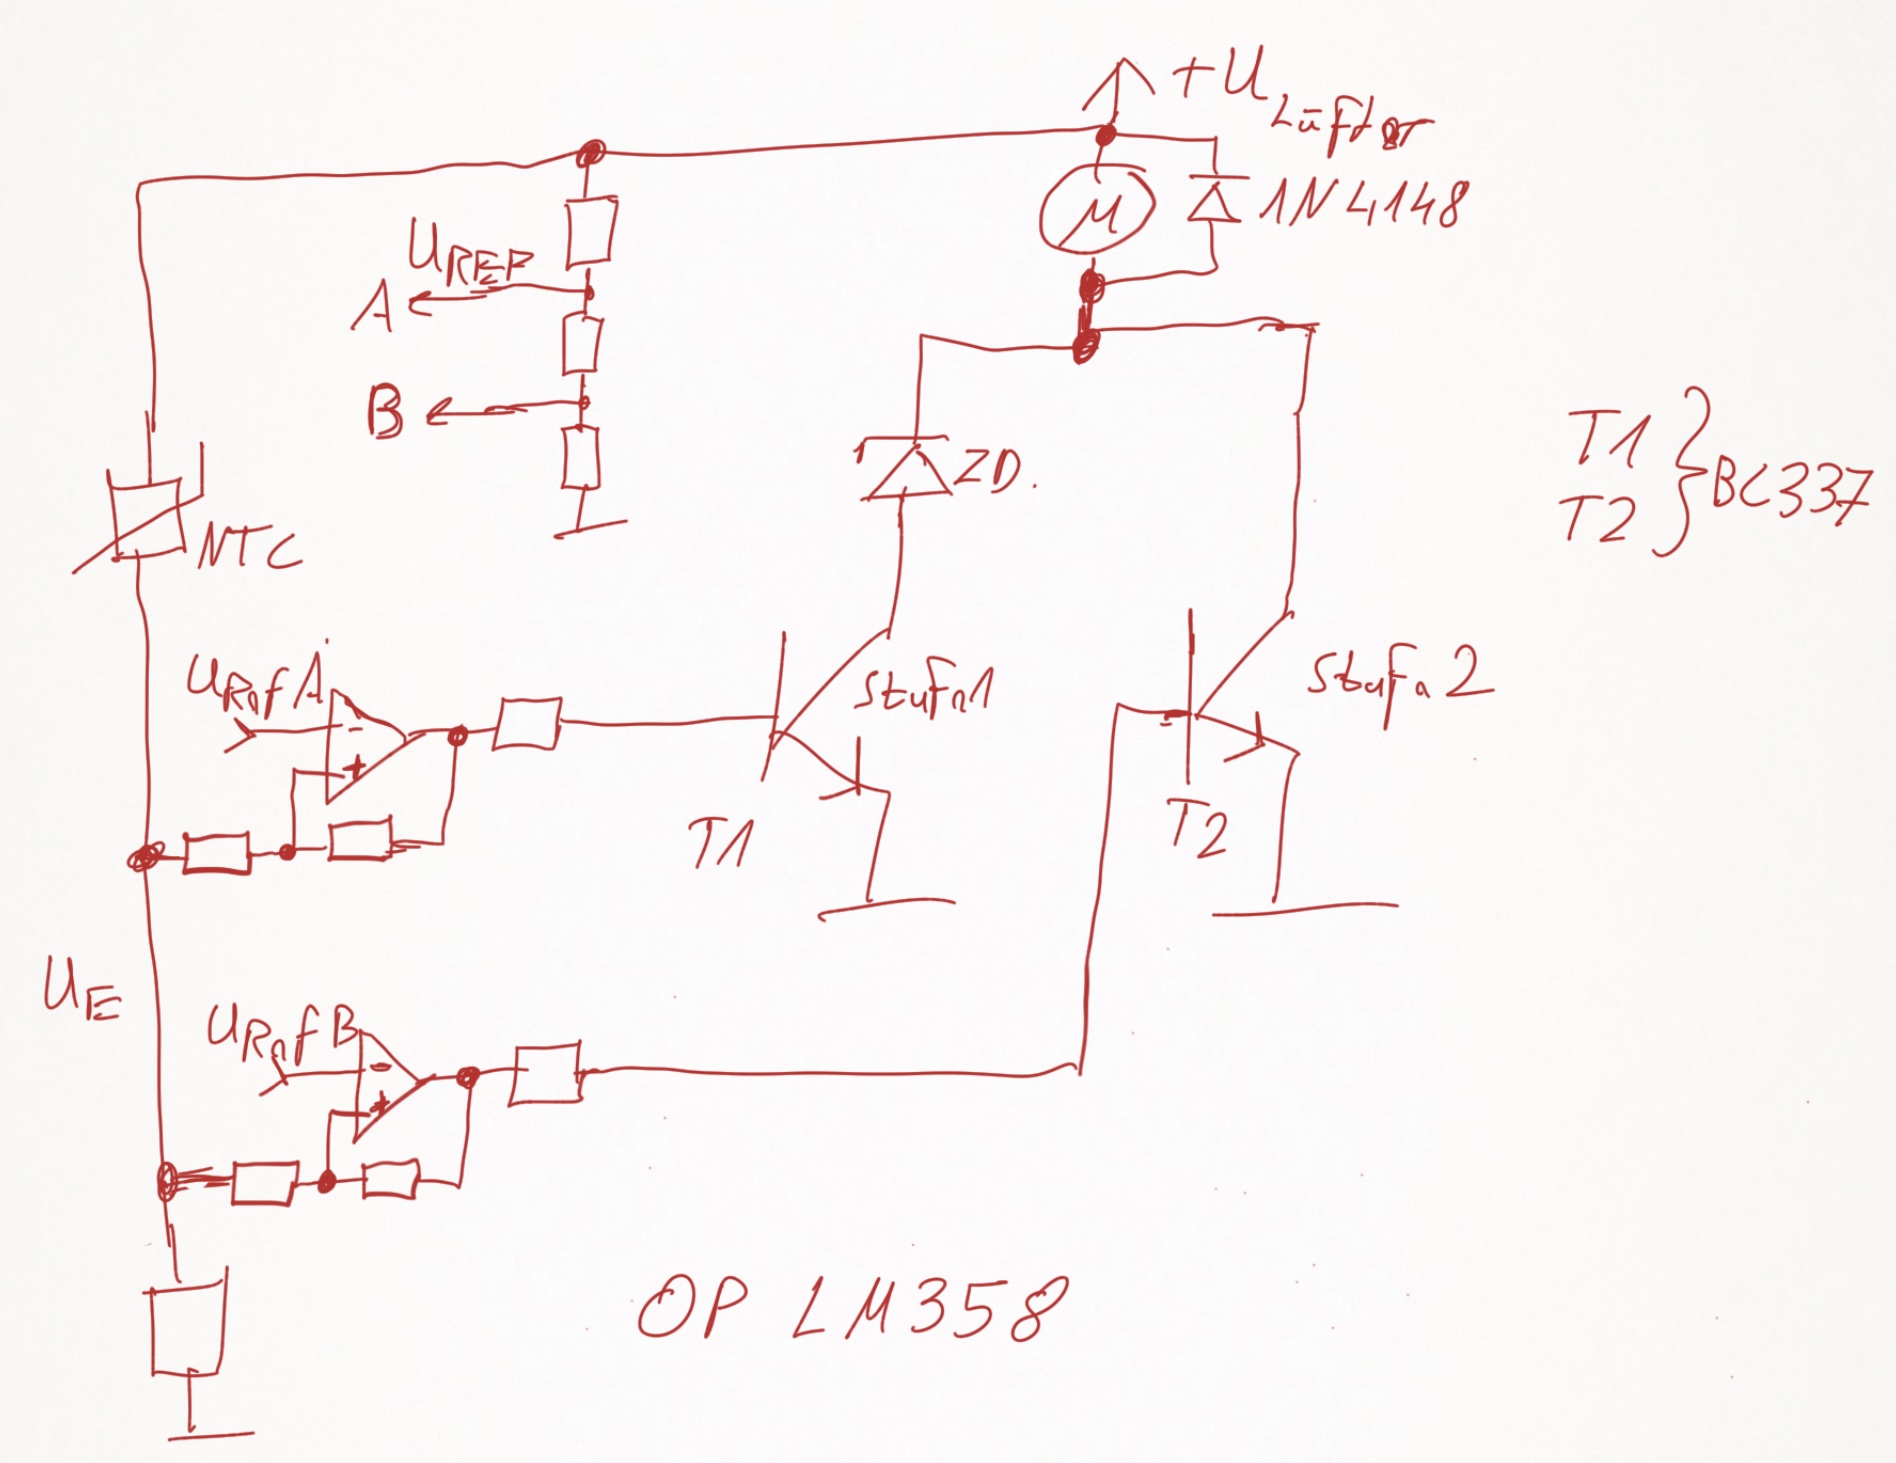 +U Lüfter
M
1N4148
U REF
A
B
ZD.
T1
T2 } BC337
NTC
U Ref A
-
+
Stufe1
Stufe 2
T1
T2
U E
U Ref B
-
+
OP LM358